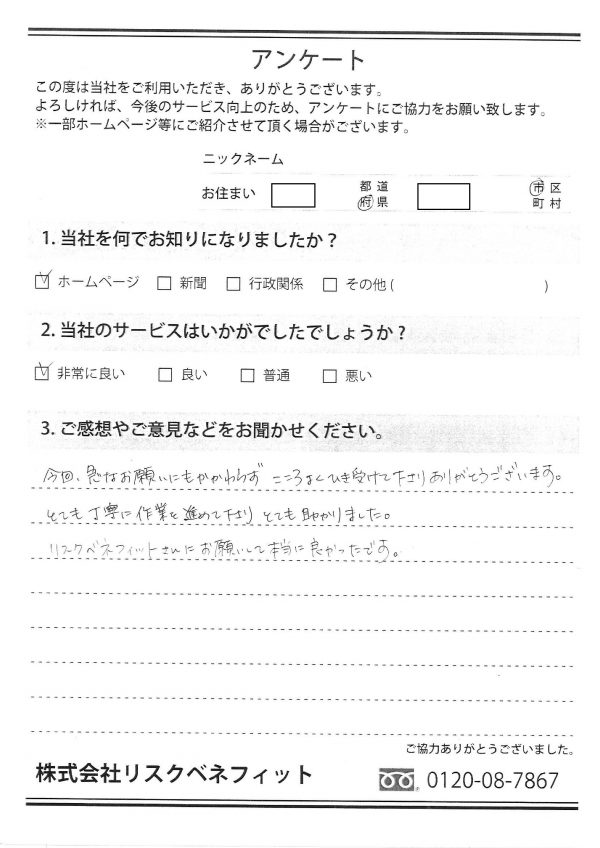 アンケート
この度は当社をご利用いただき、ありがとうございます。
よろしければ、今後のサービス向上のため、アンケートにご協力をお願い致します。
※一部ホームページ等にご紹介させて頂く場合がございます。
ニックネーム
お住まい 都 道 府 県 市 区 町 村
1. 当社を何でお知りになりましたか？
ホームページ 新聞 行政関係 その他 ( )
2. 当社のサービスはいかがでしたでしょうか？
非常に良い 良い 普通 悪い
3. ご感想やご意見などをお聞かせください。
今回、急なお願いにもかかわらず こころよくひき受けて下さりありがとうございます。
とても丁寧に作業を進めて下さり とても助かりました。
リスクベネフィットさんにお願いして本当に良かったです。
ご協力ありがとうございました。
株式会社リスクベネフィット 0120-08-7867